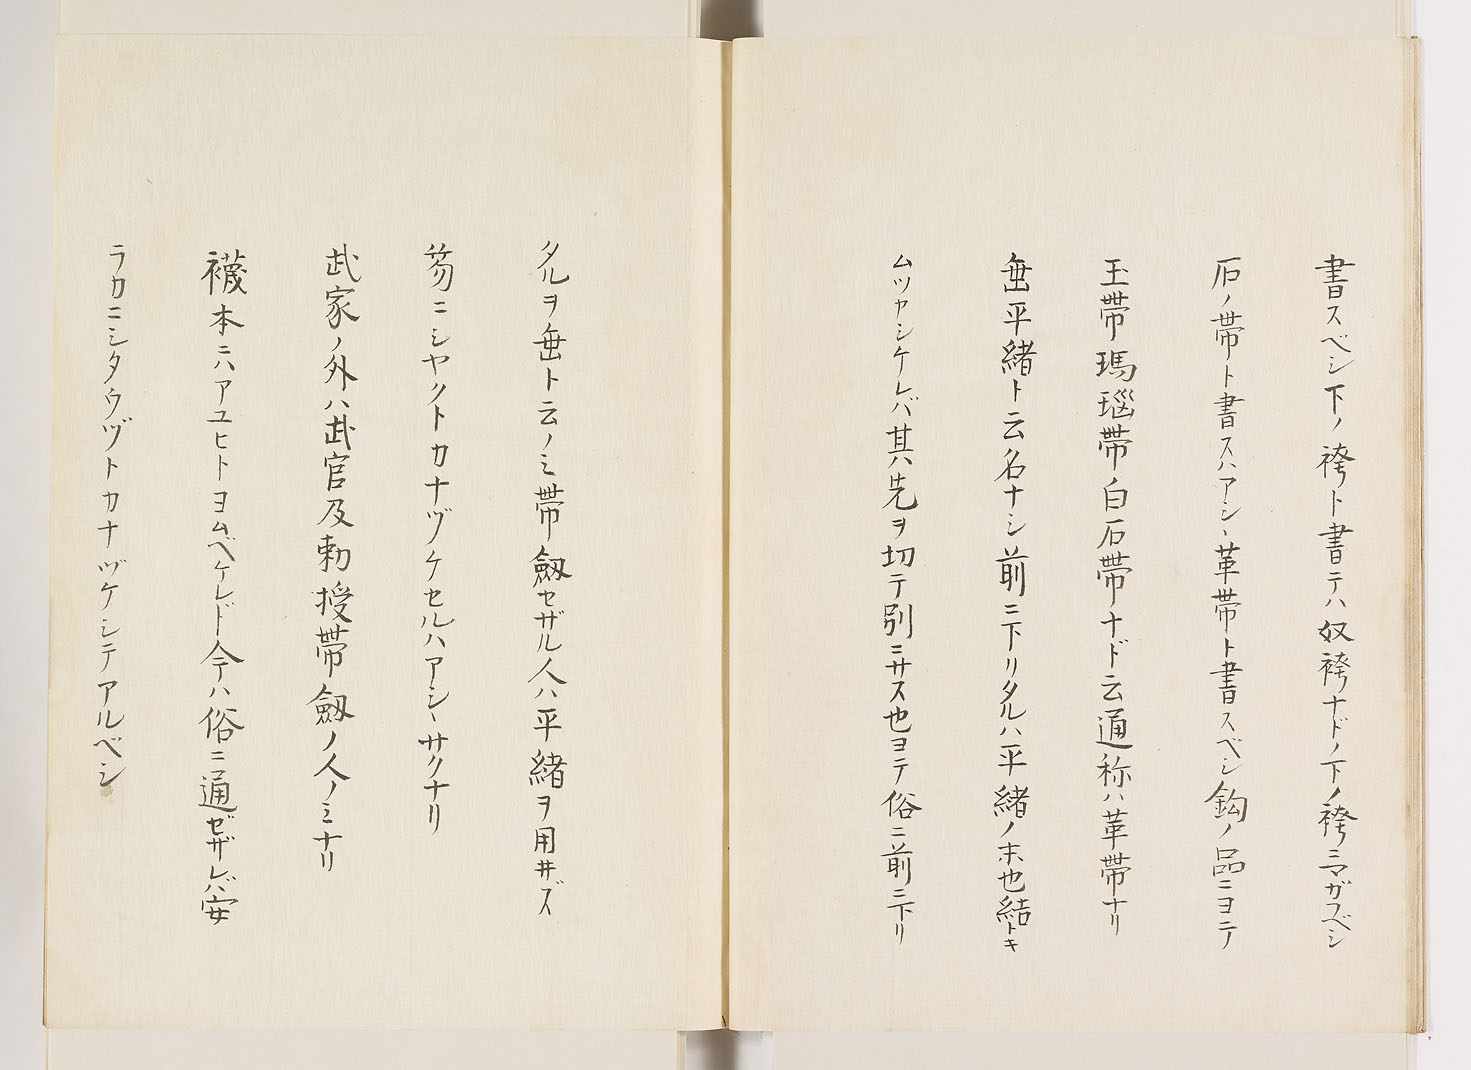 書スベシ下ノ袴ト書テハ奴袴ナドノ下ノ袴ニマガフベシ
石ノ帯ト書スハアシヽ革帯ト書スベシ鈎ノ品ニヨテ
玉帯瑪瑙帯白石帯ナド云通称ハ革帯ナリ
垂平緒ト云名ナシ前ニ下リタルハ平緒ノ末也結トキ
ムツヤシケレバ其先ヲ切テ別ニサス也ヨテ俗ニ前ニ下リ
タルヲ垂ト云ノミ帯劔セザル人ハ平緒ヲ用井ズ
笏ニシヤクトカナヅケセルハアシヽサクナリ
武家ノ外ハ武官及勅授帯劔ノ人ノミナリ
襪本ニハアユヒトヨムベケレド今ハ俗ニ通ゼザレバ安
ラカニシタウヅトカナヅケシテアルベシ